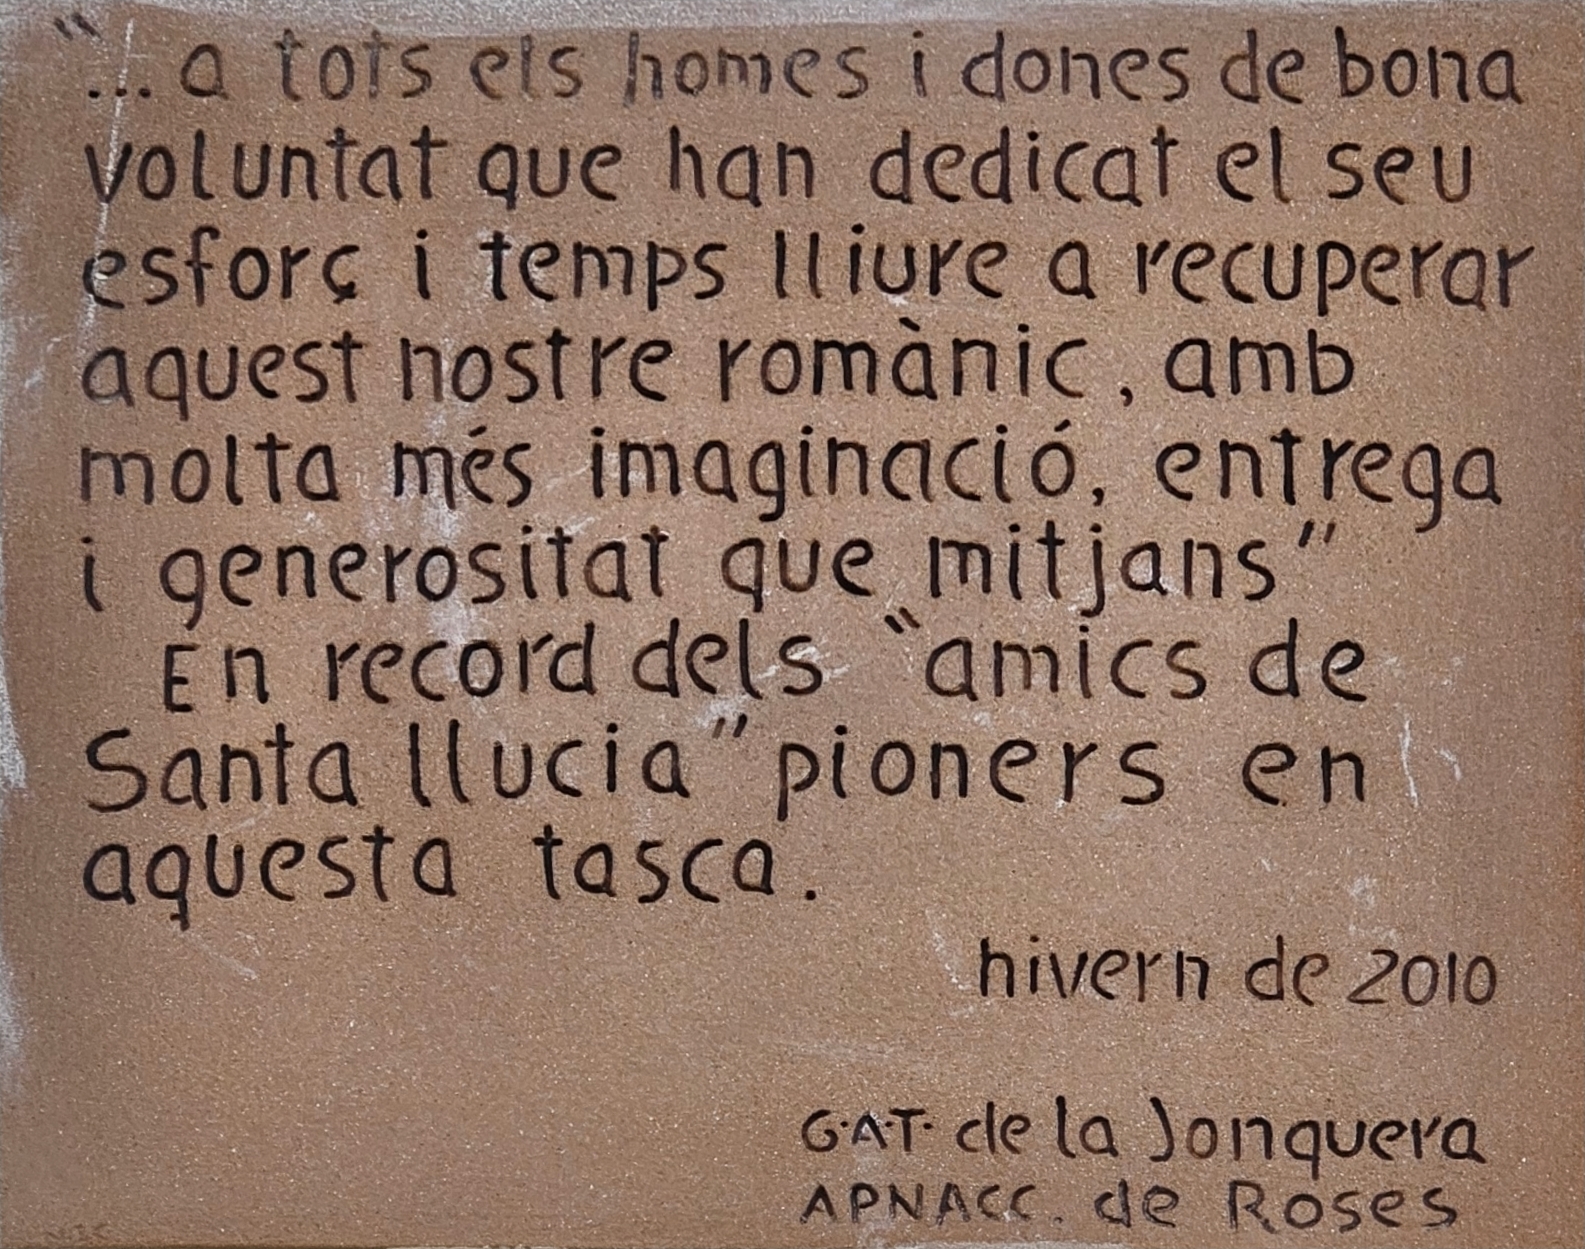 “... a tots els homes i dones de bona
voluntat que han dedicat el seu
esforç i temps lliure a recuperar
aquest nostre romànic, amb
molta més imaginació, entrega
i generositat que mitjans”
En record dels “amics de
Santa llucia” pioners en
aquesta tasca.
hivern de 2010
G·A·T· de la Jonquera
APNACC. de Roses